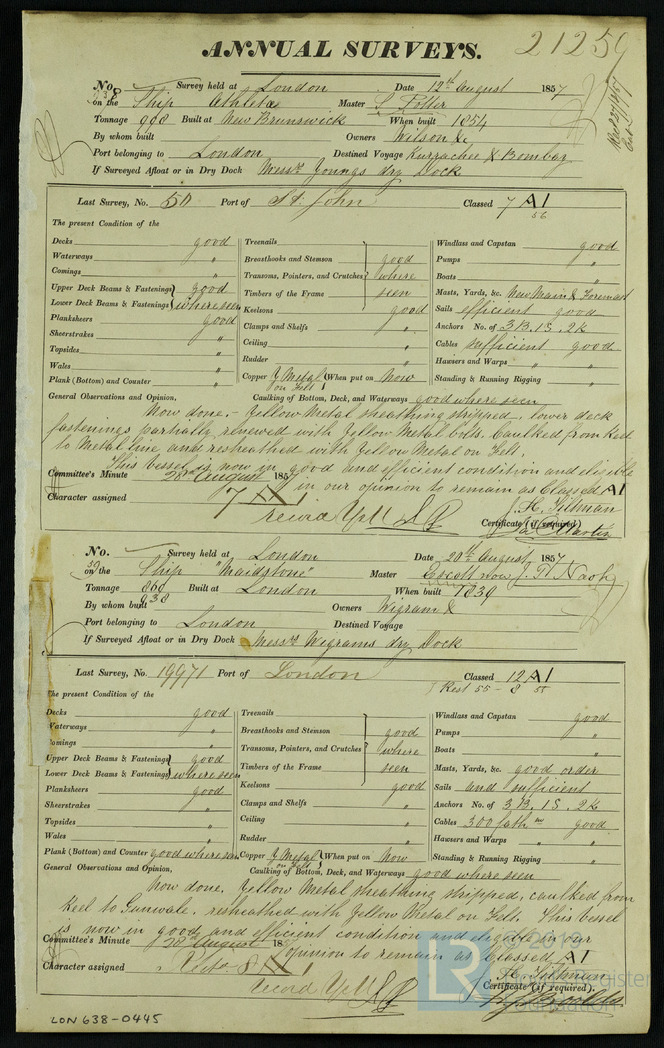 ANNUAL SURVEYS.
21259
No. Survey held at London Date 12th August 1857
on the Ship Athleta Master Potter
Tonnage 908 Built at New Brunswick When built 1854
By whom built Owners Wilson &c
Port belonging to London Destined Voyage Kurrachee & Bombay
If Surveyed Afloat or in Dry Dock Messrs Youngs dry Dock
Last Survey, No. 50 Port of St. John Classed 7 A1
56
The present Condition of the
Decks good
Waterways "
Comings "
Upper Deck Beams & Fastenings good
Lower Deck Beams & Fastenings where seen
Planksheers good
Sheerstrakes "
Topsides "
Wales "
Plank (Bottom) and Counter "
Treenails
Breasthooks and Stemson good
Transoms, Pointers, and Crutches where
Timbers of the Frame seen
Keelsons good
Clamps and Shelfs "
Ceiling "
Rudder "
Copper Y Metal on Felt (When put on Now
Windlass and Capstan good
Pumps "
Boats "
Masts, Yards, &c. New Main & Foremast
Sails efficient good
Anchors No. of 3B. 1S. 2K
Cables sufficient good
Hawsers and Warps " "
Standing & Running Rigging "
General Observations and Opinion, Caulking of Bottom, Deck, and Waterways good where seen
Now done. - Yellow Metal sheathing stripped, lower deck
fastenings partially renewed with Yellow Metal bolts. Caulked from Keel
to Metal line and resheathed with Yellow Metal on Felt.
This vessel is now in good and efficient condition and eligible
Committee's Minute 28th August 1857 in our opinion to remain as Classed A1
Character assigned 7 A 1 J. H. Tillman
record Y M Certificate (if required) Martin
No. Survey held at London Date 20th August 1857
on the Ship "Maidstone" Master Escott now J. P. Nash
Tonnage 860 Built at London When built 1839
938
By whom built Owners Wigram &
Port belonging to London Destined Voyage
If Surveyed Afloat or in Dry Dock Messrs Wigrams dry Dock
Last Survey, No. 19971 Port of London Classed 12 A1
Rest 55 - 8
The present Condition of the
Decks good
Waterways "
Comings "
Upper Deck Beams & Fastenings good
Lower Deck Beams & Fastenings where seen
Planksheers good
Sheerstrakes "
Topsides "
Wales "
Plank (Bottom) and Counter good where seen
Treenails
Breasthooks and Stemson good
Transoms, Pointers, and Crutches where
Timbers of the Frame seen
Keelsons good
Clamps and Shelfs "
Ceiling "
Rudder "
Copper Y Metal on Felt (When put on Now
Windlass and Capstan good
Pumps "
Boats "
Masts, Yards, &c. good order
Sails and sufficient
Anchors No. of 3B. 1S. 2K
Cables 300 fath ms good
Hawsers and Warps " "
Standing & Running Rigging "
General Observations and Opinion, Caulking of Bottom, Deck, and Waterways good where seen
Now done. Yellow Metal sheathing stripped, caulked from
Keel to Gunwale, resheathed with Yellow Metal on Felt. This vessel
is now in good and efficient condition and eligible in our
Committee's Minute 28th August 185 opinion to remain as Classed A1
Character assigned A 1 J. H. Tillman
record Y M Certificate (if required).
LON 638-0445
LR © 2019
Lloyd's Register
Foundation